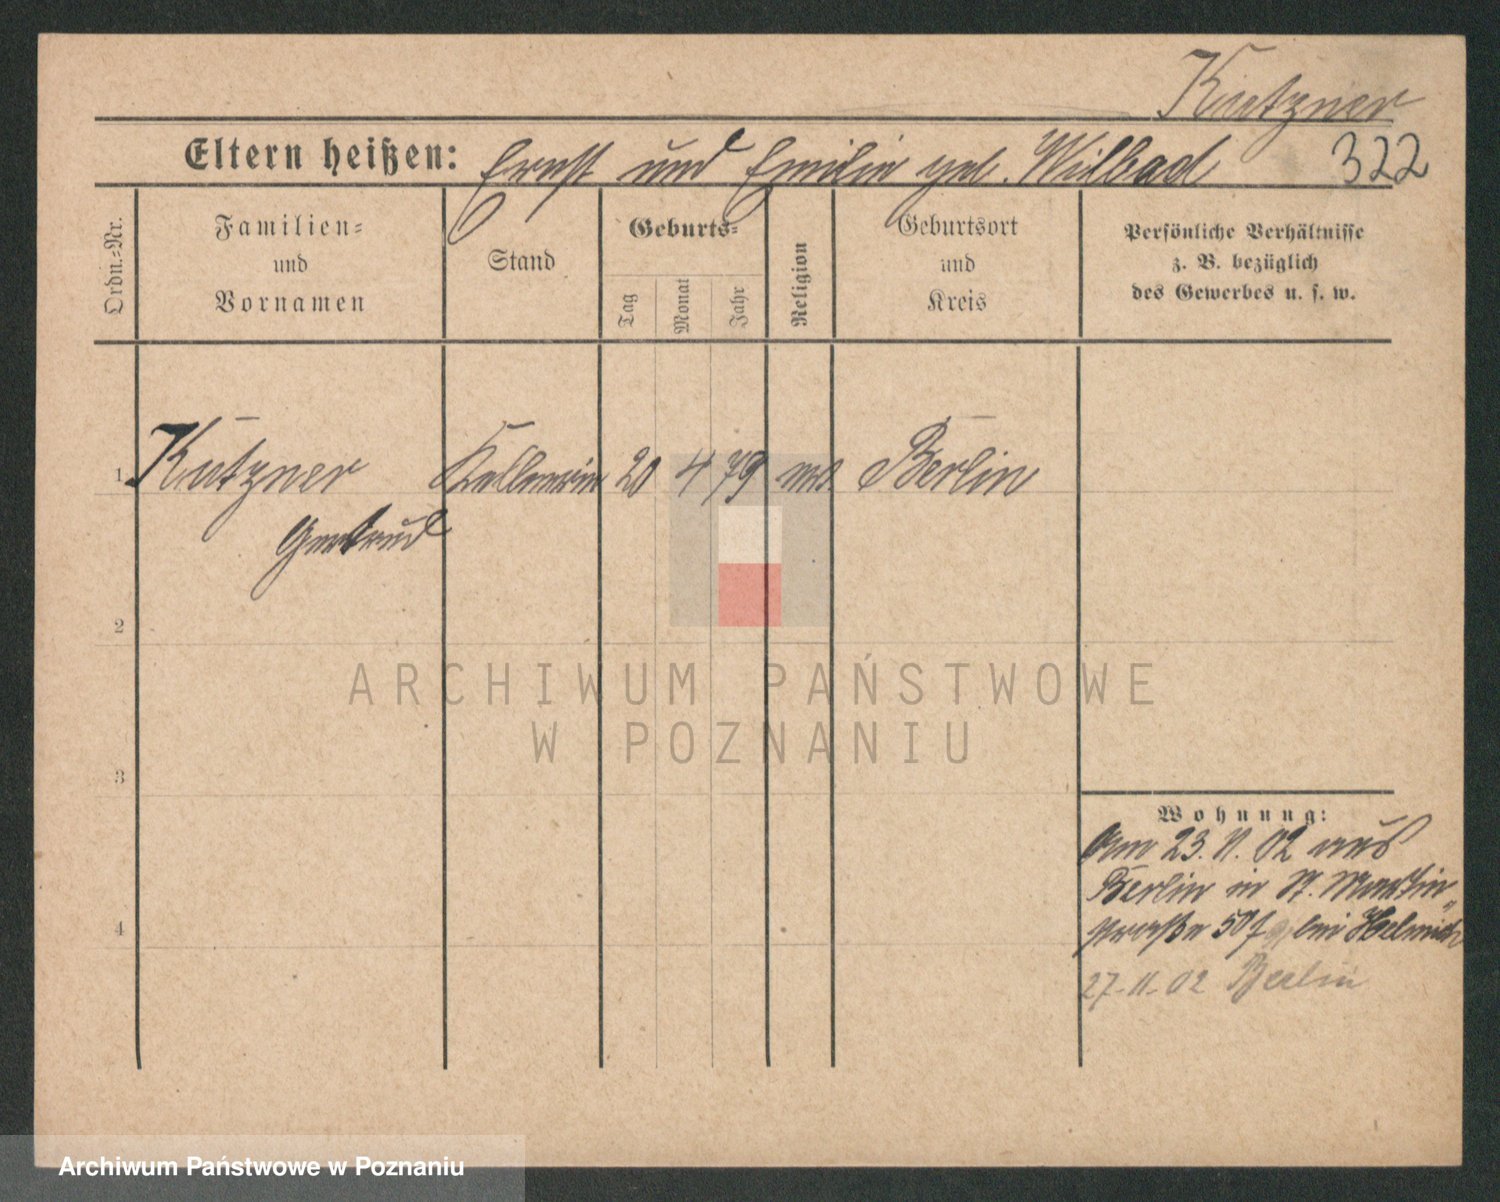 Kutzner
Eltern heißen: Ernst und Emilie geb. Wilbad
322
Ordn.-Nr.
Familien-
und
Vornamen
Stand
Geburts-
Tag
Monat
Jahr
Religion
Geburtsort
und
Kreis
Persönliche Verhältnisse
z. B. bezüglich
des Gewerbes u. s. w.
1 Kutzner Kellnerin 20 4 79 Berlin
Gertrud
2
ARCHIWUM PAŃSTWOWE
W POZNANIU
3
Wohnung:
Am 23. 11. 02 aus
Berlin in St. Martin-
straße 50 bei Helmich
4
27-11-02 Berlin
Archiwum Państwowe w Poznaniu